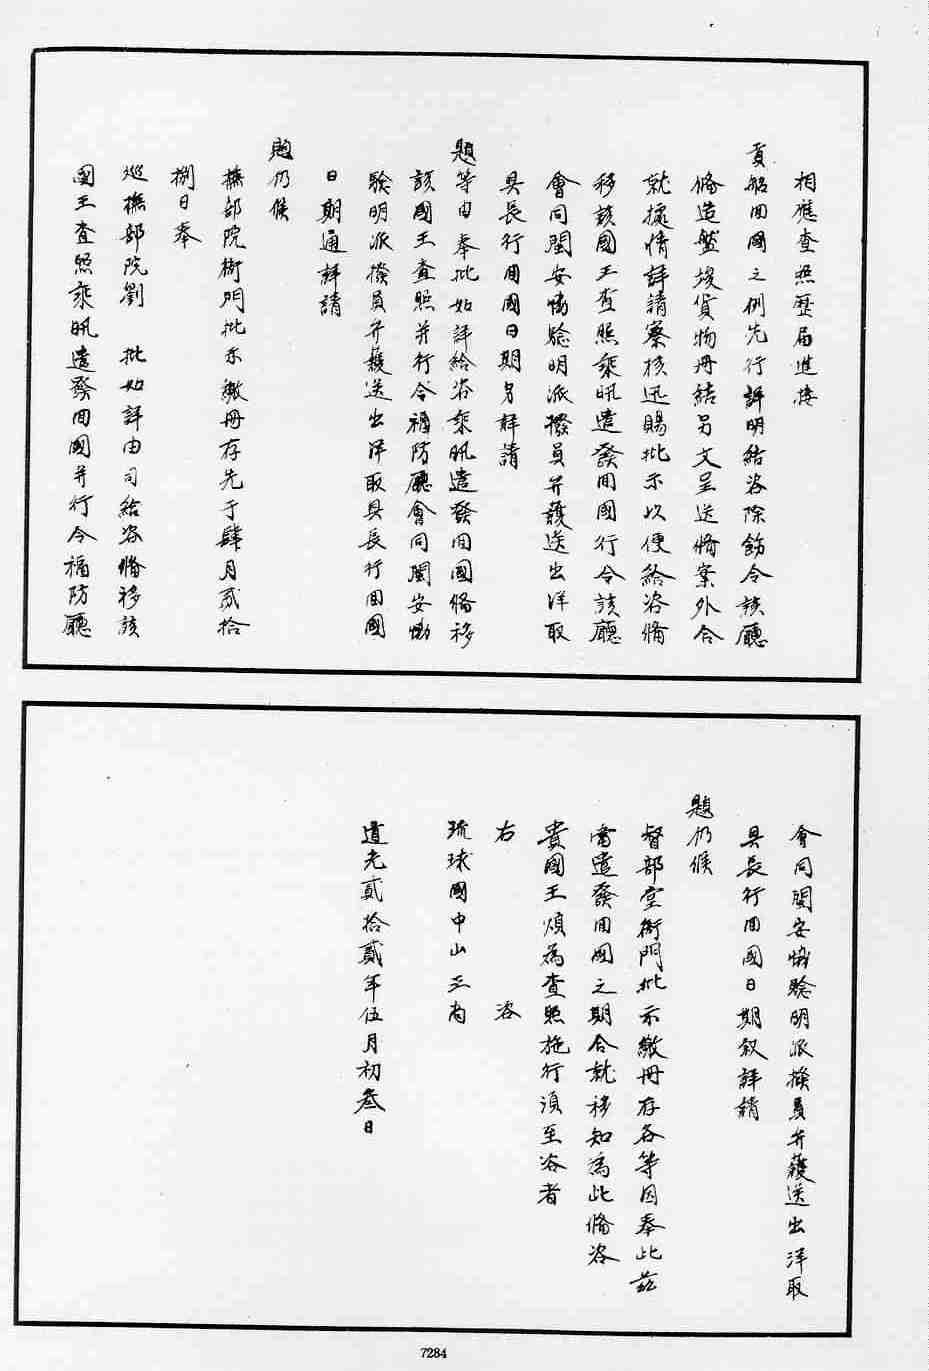 相應查照歷届進接
貢船回國之例先行詳明結咨除飭令該廳
俻造盤竣貨物册結另文呈送俻案外合
就據情詳請察核迅賜批示以便給咨俻
移該國王查照乘汛遣發回國行令該廳
會同閩安恊騐明派撥員弁護送出洋取
具長行回國日期另詳請
題等由奉批如詳給咨乘汛遣發回國俻移
該國王查照并行令福防廳會同閩安恊
騐明派撥員弁護送出洋取具長行回國
日期通詳請
題仍候
撫部院衙門批示繳册存先于肆月貳拾
捌日奉
巡撫部院劉 批如詳由司給咨俻移該
國王查照乘汛遣發回國并行令福防廳
會同閩安恊騐明派撥員弁護送出洋取
具長行回國日期叙詳請
題仍候
督部堂衙門批示繳册存各等因奉此兹
當遣發回國之期合就移知為此俻咨
貴國王煩為查照施行須至咨者
右 咨
琉球國中山王尚
道光貳拾貳年伍月初叁日
7284